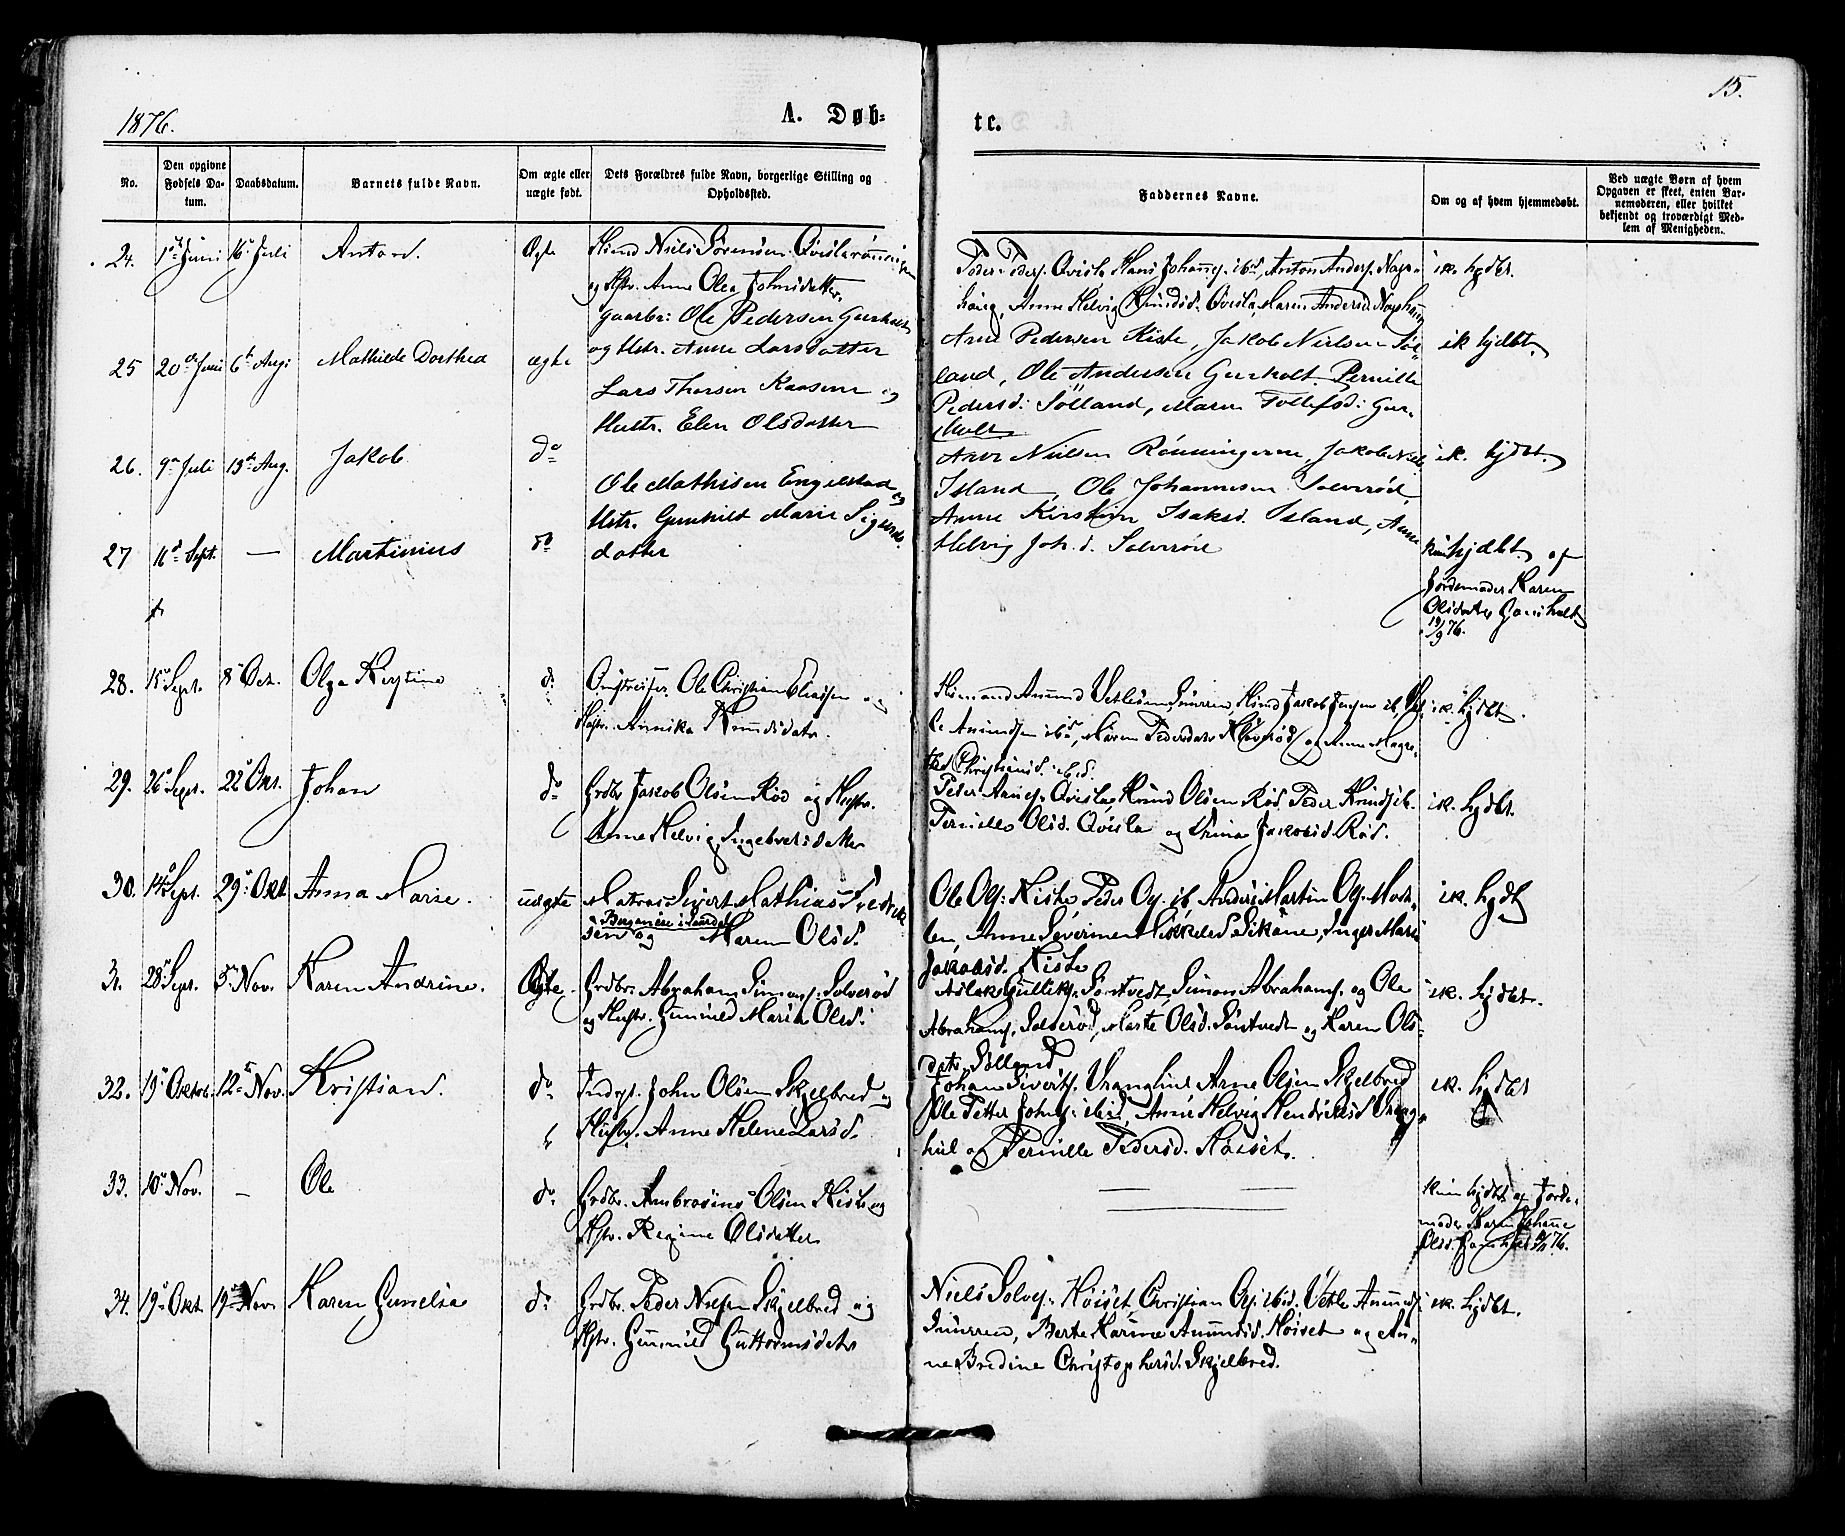 1876.
A. Døb-
te.
15.
No.
Den opgivne Fødsels Da-tum.
Daabsdatum.
Barnets fulde Navn.
Om ægte eller uægte født.
Dets Forældres fulde Navn, borgerlige Stilling og Opholdssted.
Faddernes Navne.
Om og af hvem hjemmedøbt.
Ved uægte Børn af hvem
Opgaven er skeet, enten Bar-
nemoderen, eller hvilket
bekjendt og troværdigt Med-
lem af Menigheden.
24. 1ste Juni 16 Juli Anton. Ægte Niels Sørensen
og Hstr. Anne Olea Johnsdatter.
Peder Peders. Qvisla Hans Johannes. ibd, Anton Anders.
Anne Helvig Knudsd. Qvisla, Maren Andersd.
ik. hjdbt.
25 20de Juni 6te Aug: Mathilde Dorthea ægte
Gaarbr: Ole Pedersen Gunholt
og Hstr. Anne Larsdatter
Arne Pedersen Kiste, Jakob Nielsen Søl-
land, Ole Andersen Gunholt. Pernille
Pedersd: Sölland, Maren Tollefsd: Gun-
holt
ik hjdbt.
26. 9de Juli 13de Aug. Jakob do
Lars Thorsen Kaasene og
Hustr. Elen Olsdatter
Arne Nielsen Rönningerne, Jakob Niels.
Island, Ole Johannesen Solveröd,
Anne Kirstin Isaksd. Island, Anne
Helvig Joh.d. Solveröd
ik. hjdbt.
27 11te Sept. — Martinius do
Ole Mathisen Engelstad og
Hstr. Gunhild Marie Sigurds-
datter
kun hjdbt. af
Jordemoder Karen
Olsdatter Gonholt
19/9 76.
28. 15 Sept. 8 Oct. Olga Kirstine do
Ole Christian Eliassen og
Hstr. Annika Knudsdatr.
Amund Vetlesen
le Amundsen ibd, Maren Pedersdatr og Anne Magre-
the Christiansd. ibid.
ik. hjdbt.
29. 26 Sept. 22 Okt. Johan do
Grdbr Jakob Olsen Rød og Hustr.
Anne Helvig Ingebretsdatter
Peder Hans. Qvisla Knud Olsen Rød. Peder Knuds. ib.
Pernille Olsd. Qvisla og Trina Jakobsd. Rød.
ik. hjdbt.
30. 14 Sept. 29 Okt Anna Marie. uægte
Matros Sivert Mathias Fredrik
sen og Maren Olsd.
Ole Ols. Kiste Peder Ols. ib Anders Martin Ols. Hol-
ten, Anne Severine Inger Marie
Jakobsd. Kiste
ik. hjdbt
31. 28 Sept. 5 Nov. Karen Andrine. Ægte.
Grdbr. Abraham Simons. Solverød
og Hustr. Gunnild Maria Olsd:
Aslak Gulliks. Søntvedt, Simon Abrahams. og Ole
Abrahams. Solverød, Marte Olsd. Søntvedt og Karen Ols-
datr. Sølland
ik. hjdbt.
32. 19 Oktob. 12te Nov. Kristian. do
Inderst. John Olsen Skjelbred og
Hustr. Anne Helene Larsd.
Johan Siverts. Arne Olsen Skjelbred
Ole Petter Johns. ibid, Anne Helvig Hendriksd
og Pernille Pedersd. Høiset.
ik. hjdbt
33. 10 Nov. — Ole do
Grdbr. Ambrosius Olsen Kiste og
Hstr. Regine Olsdatter
Kun hjdbt af Jorde-
moder Karen Johanne
Olsd.
34. 19 Okt 19 Nov. Karen Gunelia do
Grdbr. Peder Nielsen Skjelbred og
Hstr. Gunnild Guttormsdatr
Niels Solves. Høiset, Christian Ols. ibid. Vetle Amunds.
Berte Karine Amundsd. Høiset og An-
ne Bredine Christophersd. Skjelbred.
ik. hjdbt.